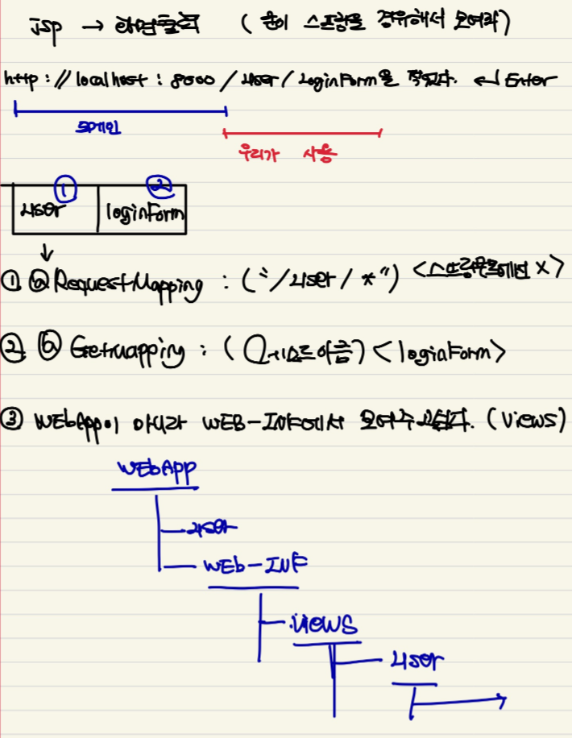 jsp → 화면출력 (굳이 스프링을 경유해서 보여라)
http://localhost:8000/user/loginForm을 적는다. ↵ Enter
도메인
우리가 사용
① ②
user loginForm
↓
① ⓐ RequestMapping : ("/user/*") <스프링부트에선 X>
② ⓑ Getmapping : (메소드이름) <loginForm>
③ WEbApp이 아니라 WEB-INF에서 보여주고싶다. (views)
WEbApp
user
WEb-INF
views
user